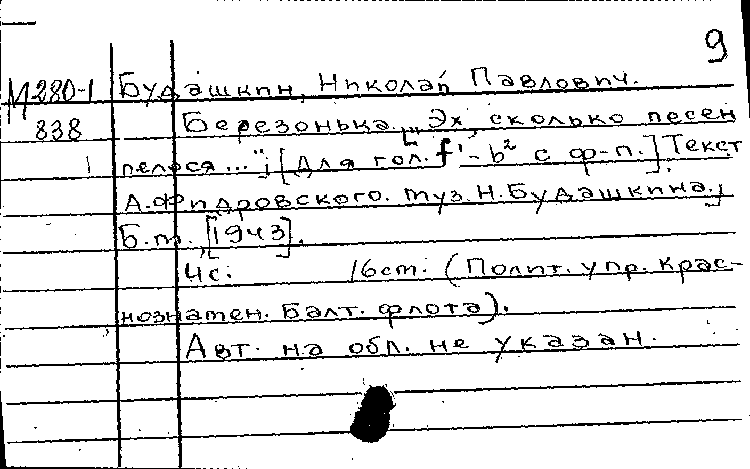 9
М280-1 Будашкин, Николай Павлович.
838 Березонька. ["Эх, сколько песен
1 пелося..."; [Для гол. f¹-b² с ф-п.] Текст
А. Фидровского. Муз. Н. Будашкина.]
Б.м., [1943].
4с. 16см. (Полит. упр. Крас-
нознамен. Балт. флота).
Авт. на обл. не указан.